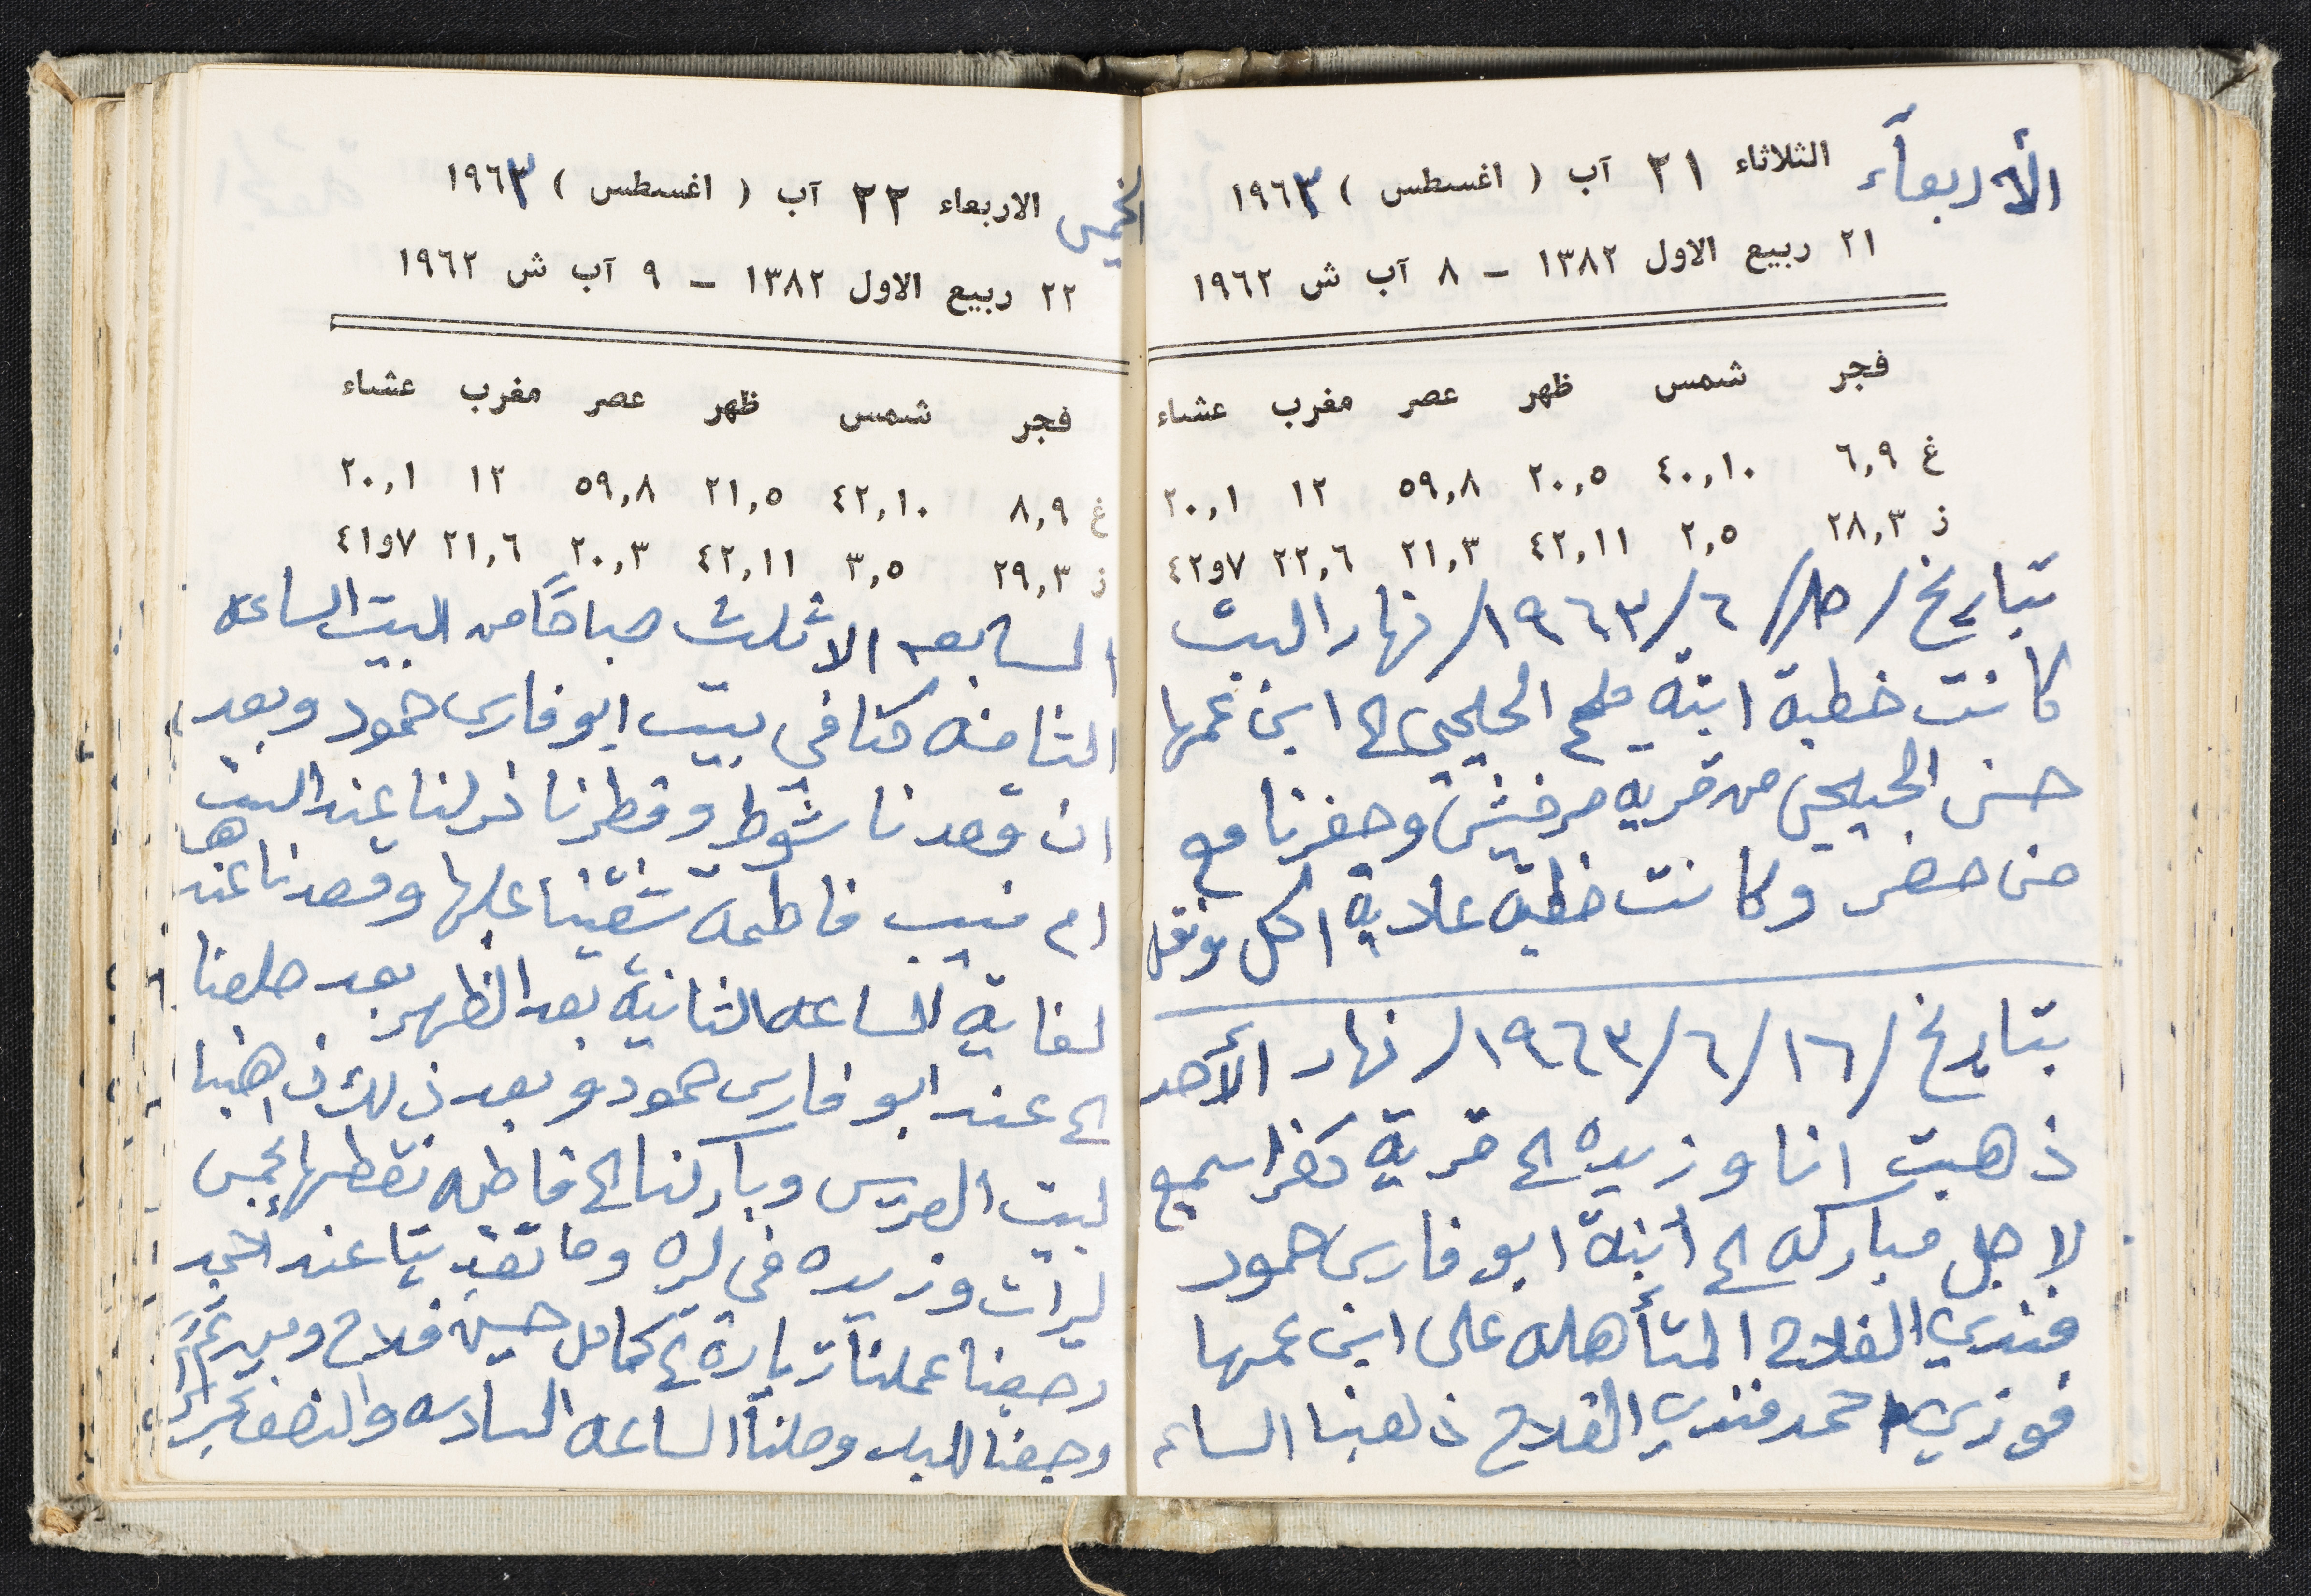 الأربعاء الثلاثاء ٢١ آب ( اغسطس ) ١٩٦٣
٢١ ربيع الاول ١٣٨٢ – ٨ آب ش ١٩٦٢
فجر شمس ظهر عصر مغرب عشاء
غ ٦,٩ ٤٠,١٠ ٢٠,٥ ٥٩,٨ ١٢ ٢٠,١
ز ٢٨,٣ ٢,٥ ٤٢,١١ ٢١,٣ ٢٢,٦ ٧و٤٢
بتاريخ /١٥/ ٦/ ١٩٦٣/ نهار السبت
كانت خطبة ابنة ملحم الحليحي الى ابن عمها
حسن الحليحي من قرية حرفيش وحضرنا مع
من حضر وكانت خطبة عادية اكل ونقل
بتاريخ /١٦/ ٦/ ١٩٦٣/ نهار الأحد
ذهبت انا وزيده الى قرية كفر سميع
لاجل مباركه الى أبنة ابو فارس حمود
فندي الفلاح المتأهله على ابن عمها
فوزي احمد فندي الفلاح ذهبنا الساعه
الخميس الاربعاء ٢٢ آب ( اغسطس ) ١٩٦٣
٢٢ ربيع الاول ١٣٨٢ – ٩ آب ش ١٩٦٢
فجر شمس ظهر عصر مغرب عشاء
غ ٨,٩ ٤٢,١٠ ٢١,٥ ٥٩,٨ ١٢ ٢٠,١
ز ٢٩,٣ ٣,٥ ٤٢,١١ ٢٠,٣ ٢١,٦ ٧و٤١
السابعه الا ثلث صباحًا من البيت الساعه
الثامنه كنا في بيت ابو فارس حمود وبعد
ان قعدنا شوط وفطرنا نزلنا عند البنت
ام نسيب فاطمة شقّينا عليها وقعدنا عندها
لغاية الساعه الثانية بعد الظهر بعد طلعنا
الى عند ابو فارس حمود وبعد ذلك ذهبنا
لبيت العريس وباركنا الى فاطمه نقطها خمس
ليرات وزيده في لره وما تغدينا عند احمد
رجعنا عملنا زيارة الى كامل حسين فلاح
رجعنا للبلد وصلنا الساعه السادسه والنصف